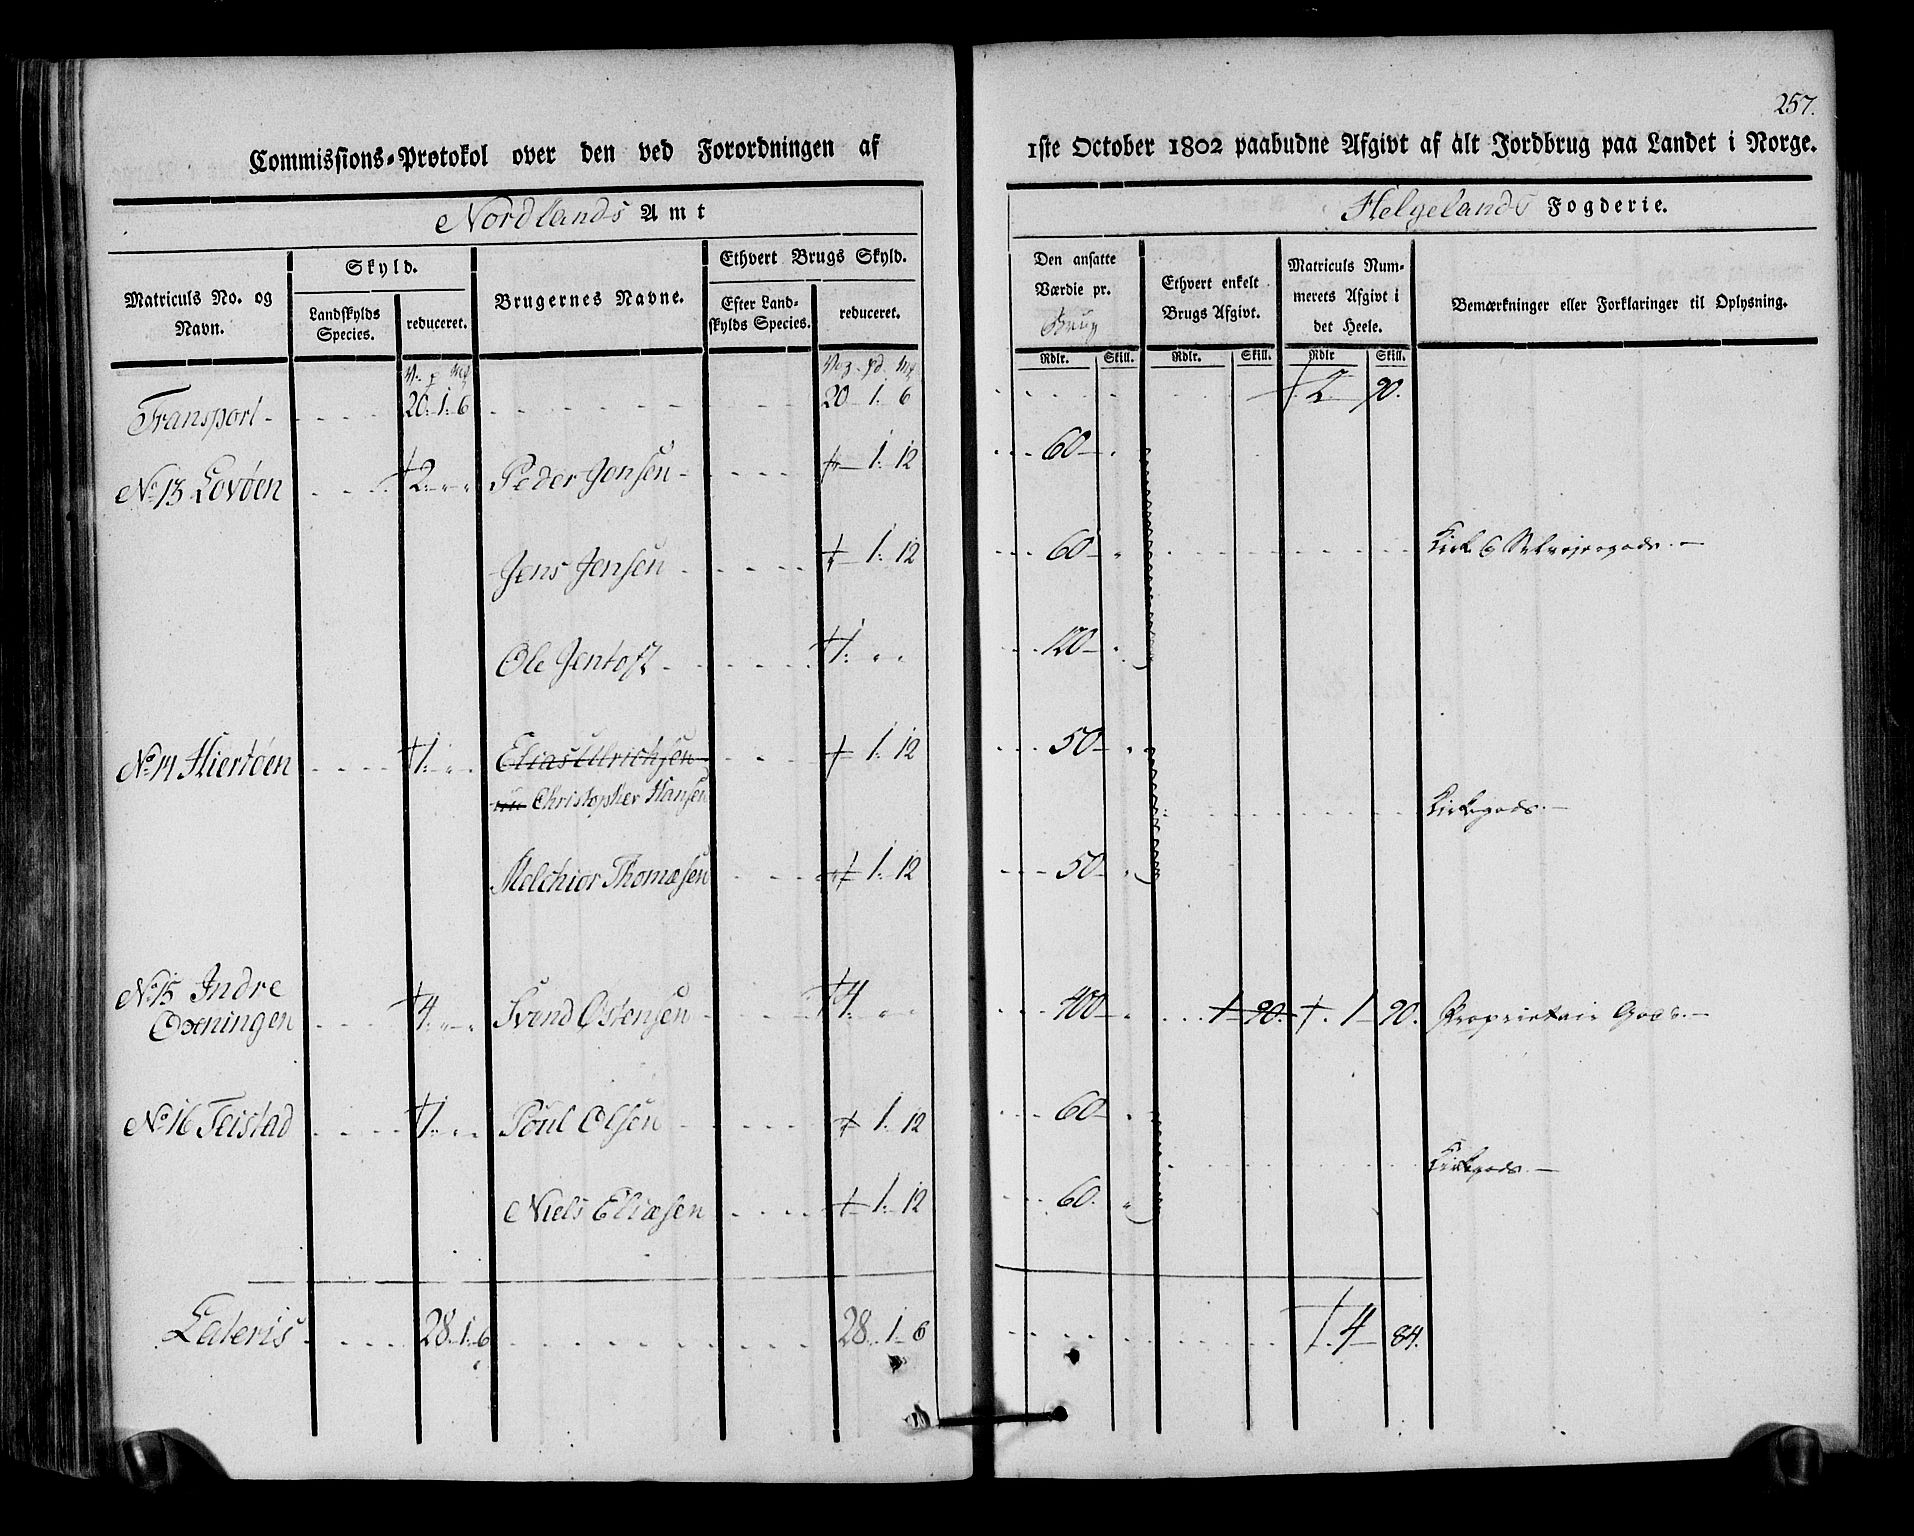 257.
Commissions-Protokol over den ved Forordningen af 1ste October 1802 paabudne Afgivt af alt Jordbrug paa Landet i Norge.
Nordlands Amt Helgelands Fogderie.
Matriculs No. og Navn.
Skyld.
Landskylds Species.
reduceret.
Brugernes Navne.
Ethvert Brugs Skyld.
Efter Landskylds Species.
reduceret.
Den ansatte Værdie pr. Brug
Ethvert enkelt Brugs Afgivt.
Matriculs Nummerets Afgivt i det Heele.
Bemærkninger eller Forklaringer til Oplysning.
Rdlr. Skill. Rdlr. Skill. Rdlr Skill.
V. p Mk Vog. pd. Mk
Transport 20. 1. 6 20 1. 6 2 90.
No 13 Lovøen 2 Peder Jensen 1. 12 60
Jens Jensen 1. 12 60
Ole Jentoft 1. 120
No 14 Hiertøen 1. Elias Ulrichsen 1. 12 50
nu Christopher Hansen
Kirkegods.
Melchior Thomæsen 1. 12 50
No 15 Indre
Oxningen 4. Svend Østensen 4. 400 1 90. 1 90. Proprietair Gods.
No 16 Teistad 1. Poul Olsen 1. 12 60
Kirkegods.
Niels Eliæsen 1. 12 60.
Lateris 28. 1. 6 28. 1 6 4 84.